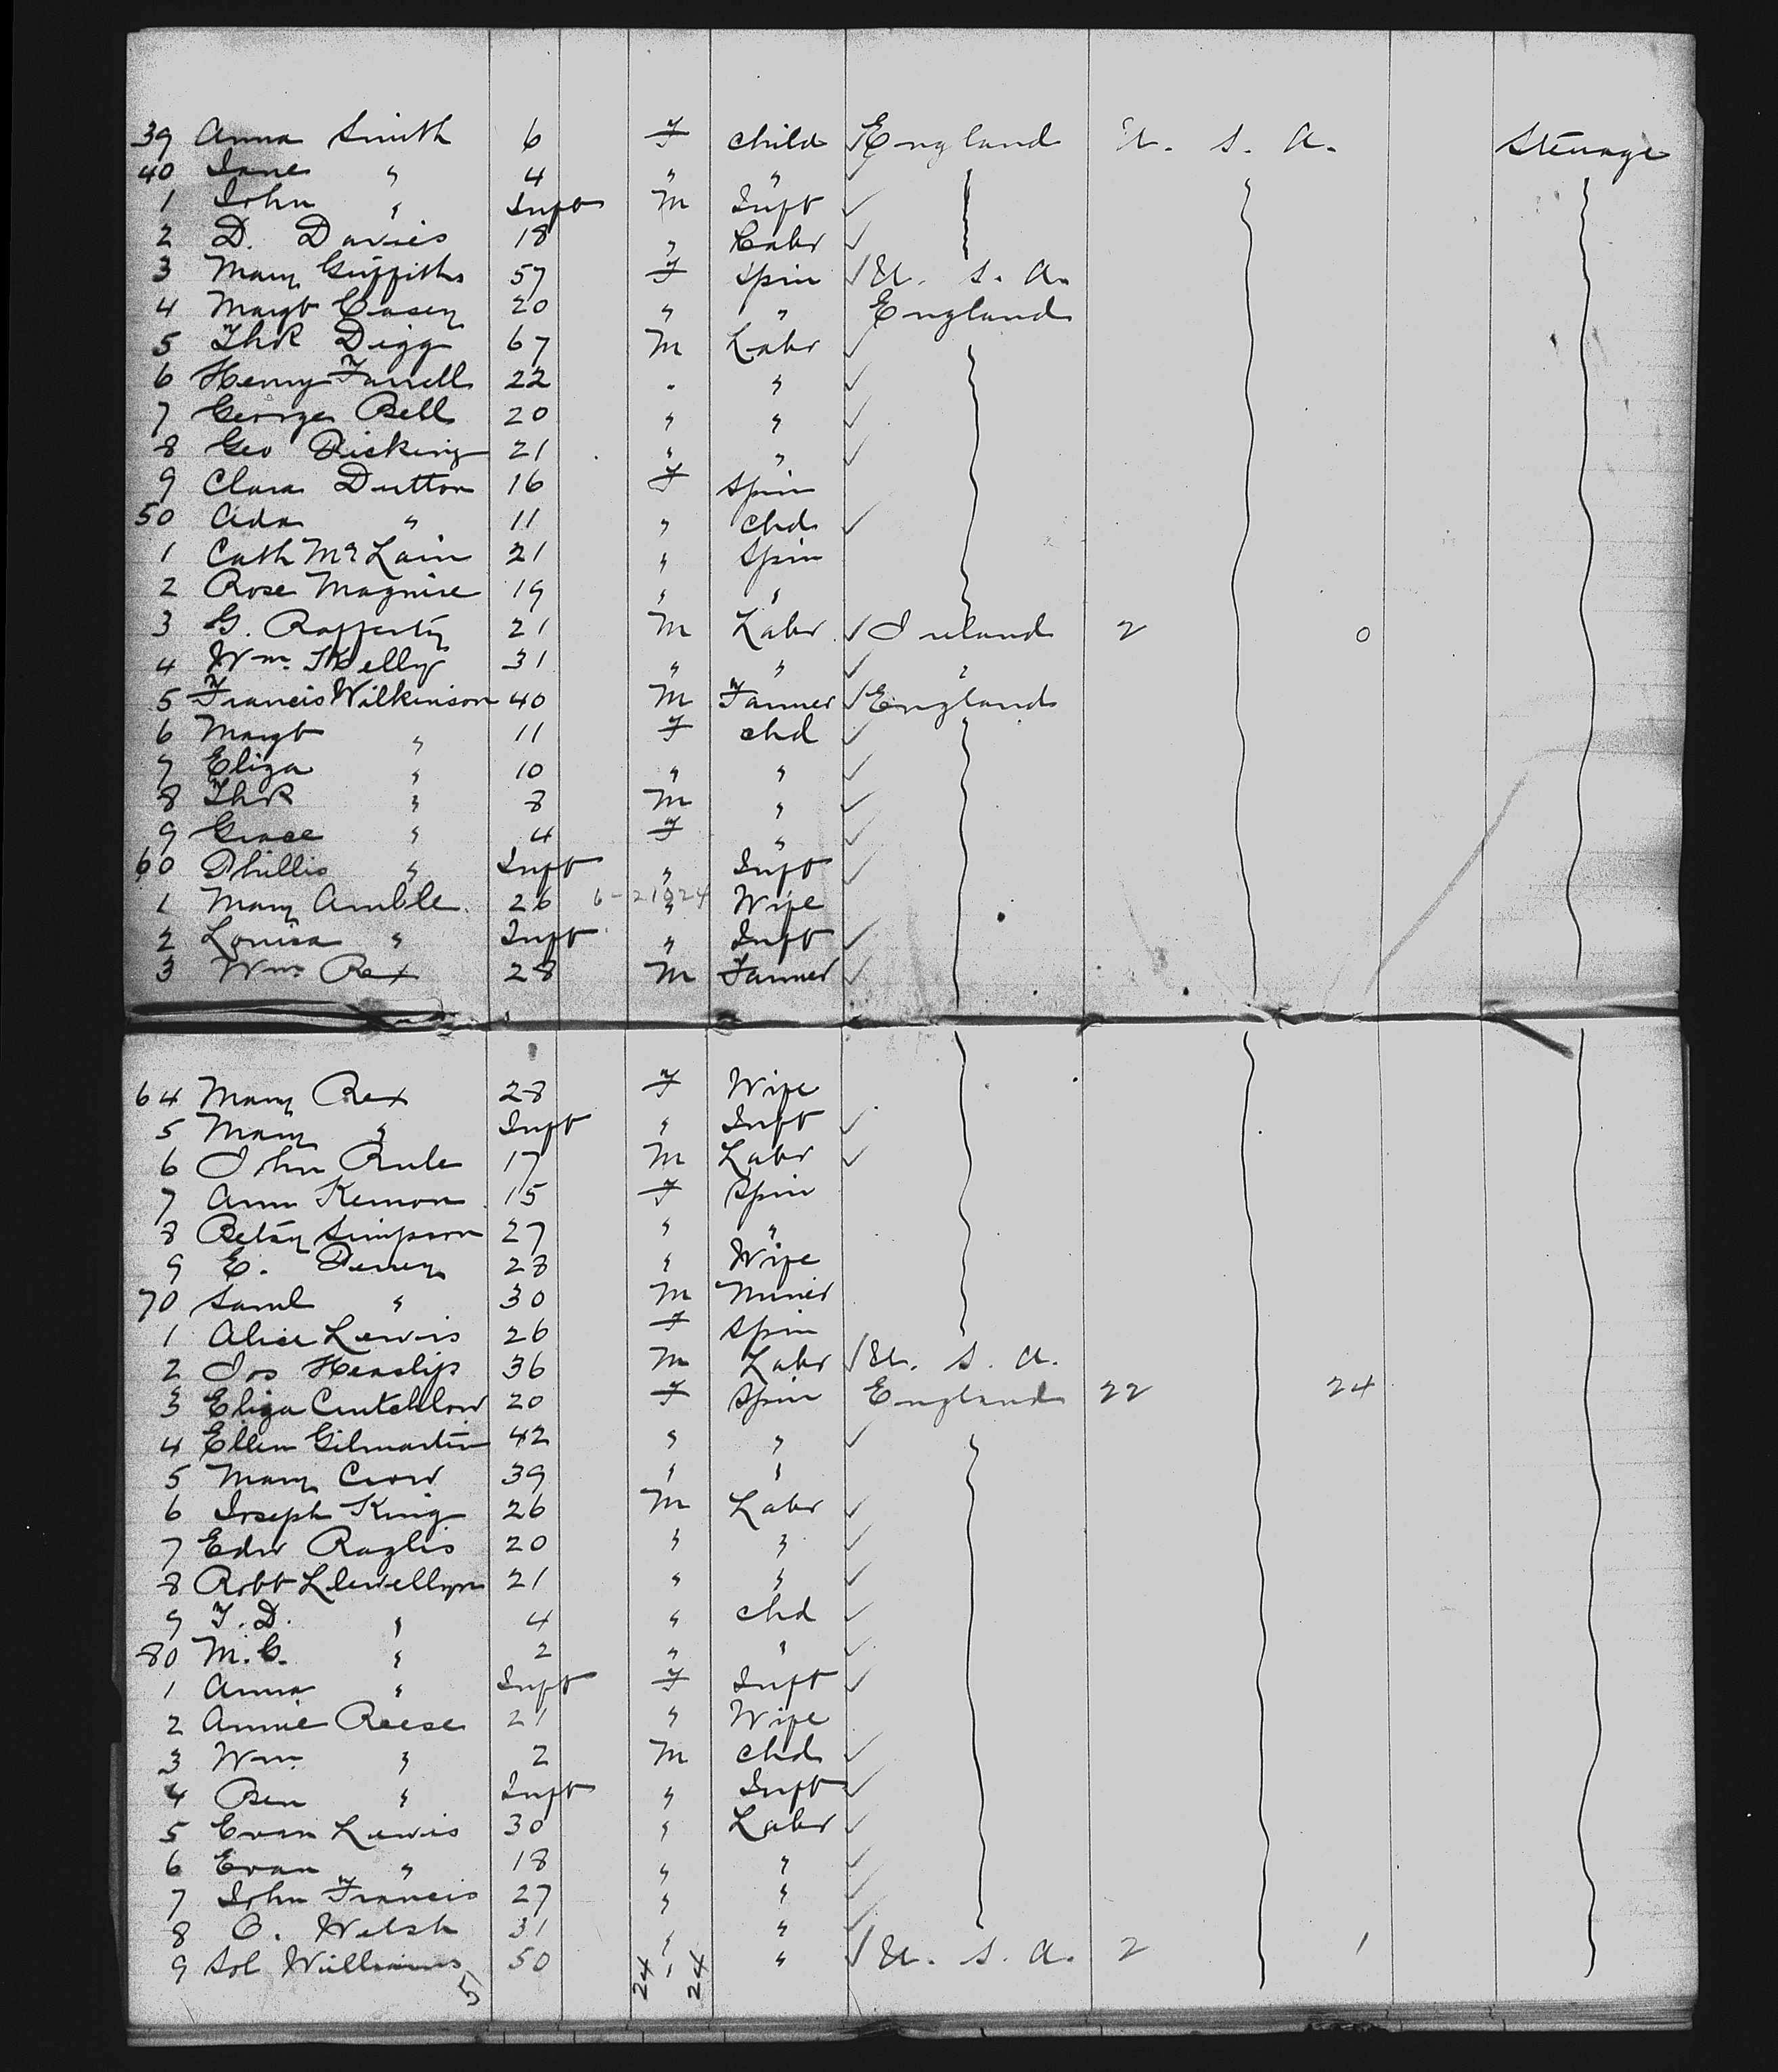 39 Anna Smith 6 F child √ England U. S. A. Steerage
40 Jane " 4 " " ✓
1 John " Inft M Inft ✓
2 D. Davies 18 " Labr ✓
3 Mary Griffiths 57 F Spin √ U. S. A.
4 Margt Casey 20 " " England
5 Thos Digg 67 M Labr ✓
6 Henry Farrell 22 " " ✓
7 George Bell 20 " " ✓
8 Geo Pisking 21 " " ✓
9 Clara Dutton 16 F Spin
50 Ada " 11 " Chd ✓
1 Cath McLain 21 " Spin
2 Rose Maguire 19 " "
3 G. Rafferty 21 M Labr √ Ireland 2 0
4 Wm. Skelly 31 " " ✓ "
5 Francis Wilkinson 40 M Farmer √ England
6 Margt " 11 F chd ✓
7 Eliza " 10 " " ✓
8 Thos " 8 M " ✓
9 Grace " 4 F " ✓
60 Phillis " Inft " Inft ✓
1 Mary Amble 26 " Wife
2 Louisa " Inft " Inft ✓
3 Wm. Rex 28 M Farmer ✓
64 Mary Rex 28 F Wife
5 Mary " Inft " Inft ✓
6 John Rule 17 M Labr ✓
7 Ann Kemon 15 F Spin
8 Betsy Simpson 27 " "
9 E. Perrey 28 " Wife
70 Saml " 30 M Miner
1 Alice Lewis 26 F Spin
2 Jos Heaslip 36 M Labr √ U. S. A.
3 Eliza Cutchlow 20 F Spin England 22 24
4 Ellen Gilmartin 42 " " ✓
5 Mary Crow 39 " "
6 Joseph King 26 M Labr ✓
7 Edw Raglis 20 " " ✓
8 Robt Llewellyn 21 " " ✓
9 T. D. " 4 " chd ✓
80 M. C. " 2 " " ✓
1 Anna " Inft F Inft ✓
2 Annie Reese 21 " Wife
3 Wm. " 2 M chd ✓
4 Ben " Inft " Inft ✓
5 Evan Lewis 30 " Labr ✓
6 Evan " 18 " " ✓
7 John Francis 27 " " ✓
8 O. Welsh 31 " " ✓
9 Sol Williams 50 " " √ U. S. A. 2 1
51 24 24